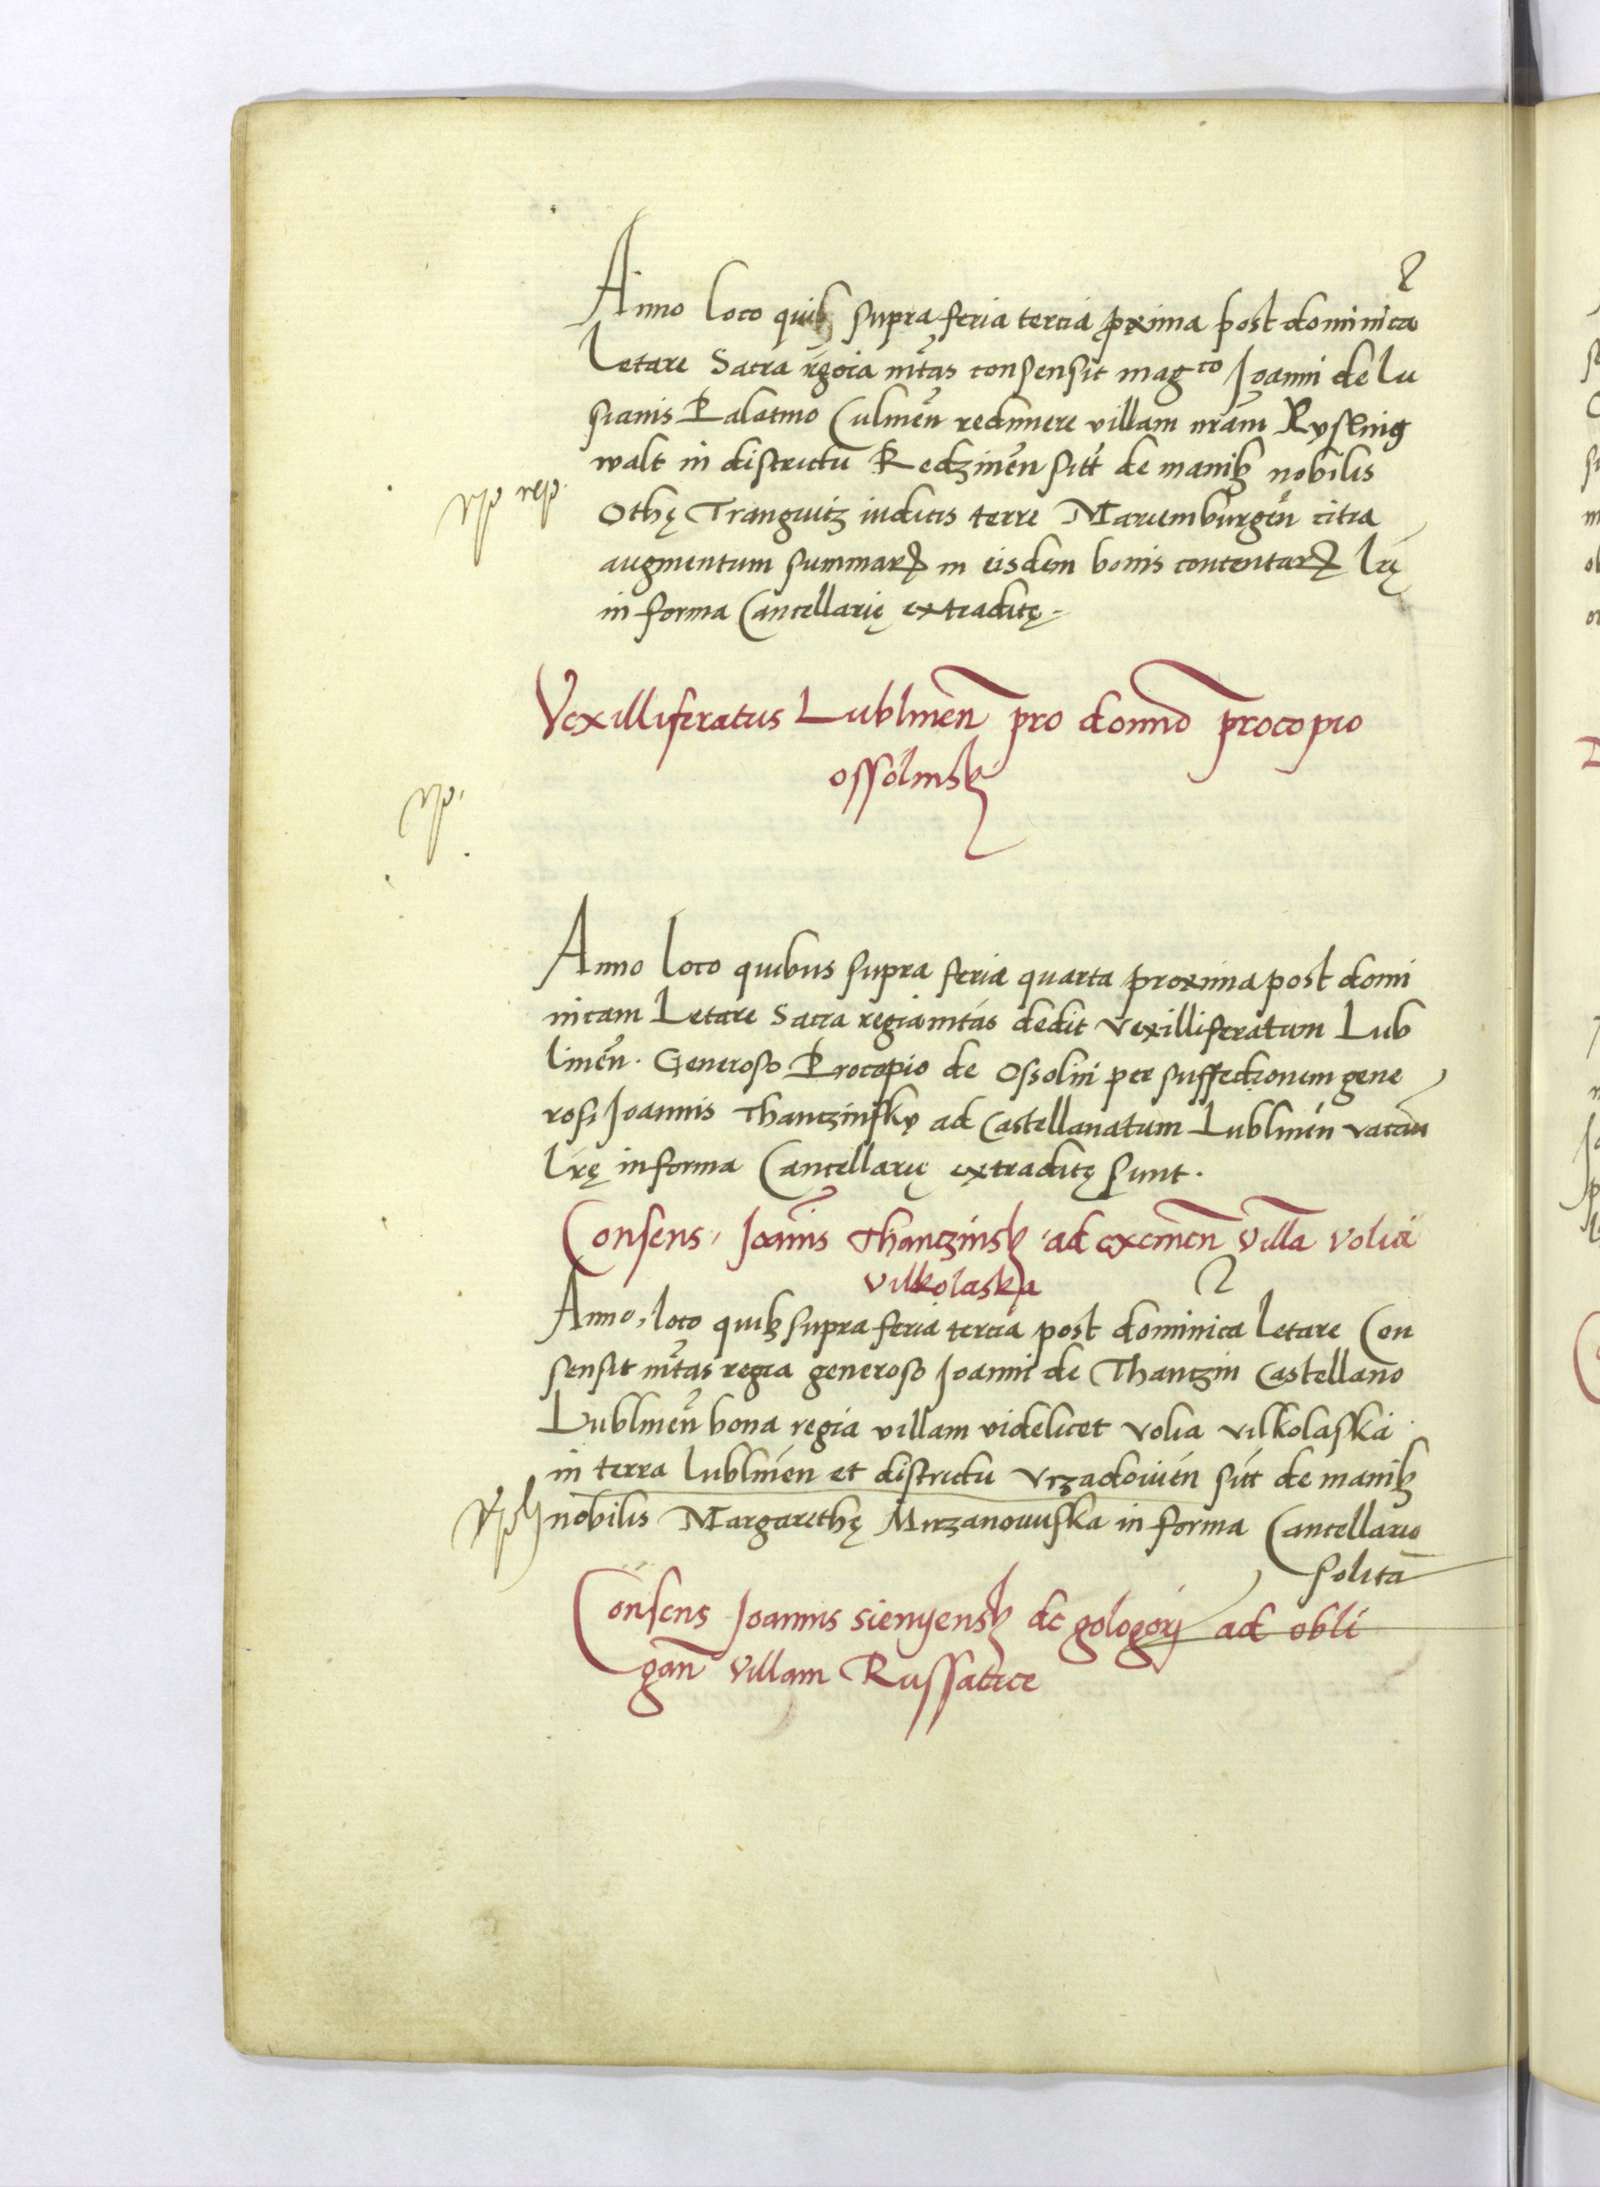 Anno loco quibꝫ supra feria tercia ꝓxima post dominicā
Letare Sacra regia mtas consensit magco Joanni de Lu
sianis Palatino Culmen̄ redimere villam nrām Rysching
walt in districtu Redzinen̄ sitt de manibꝫ nobilis
Othę Trangwicz iudicis terre Mariemburgen̄ citra
augmentum summarꝝ in eisdem bonis contentarꝝ Lrę
in forma Cancellarię extraditę
Vexilliferatus Lublinen̄ pro domno procopio
ossolinsky
Anno loco quibus supra feria quarta proxima post domi
nicam Letare Sacra regia mtas dedit vexilliferatum Lub
linen̄. Generoso Procopio de Ossolin per suffectionem gene
rosi Joannis Thanczinsky ad Castellanatum Lublinen̄ vacan̄
Lrę in forma Cancellarię extraditę sunt.
Consens, Joannis Thanczinsky ad eximen̄ villā volia
vilkolaska
Anno, loco quibꝫ supra feria tercia post dominicā Letare Con
sensit mtas regia generoso Joanni de Thanczin Castellano
Lublinen̄ bona regia villam videlicet volia vilkolaska
in terra lublinen̄ et districtu vrzadowien̄ sitt de manibꝫ
nobilis Margarethę Mirzanowska in forma Cancellarie
solita
Consens Joannis sienyensky de gologory ad obli
gan̄ villam Russatice